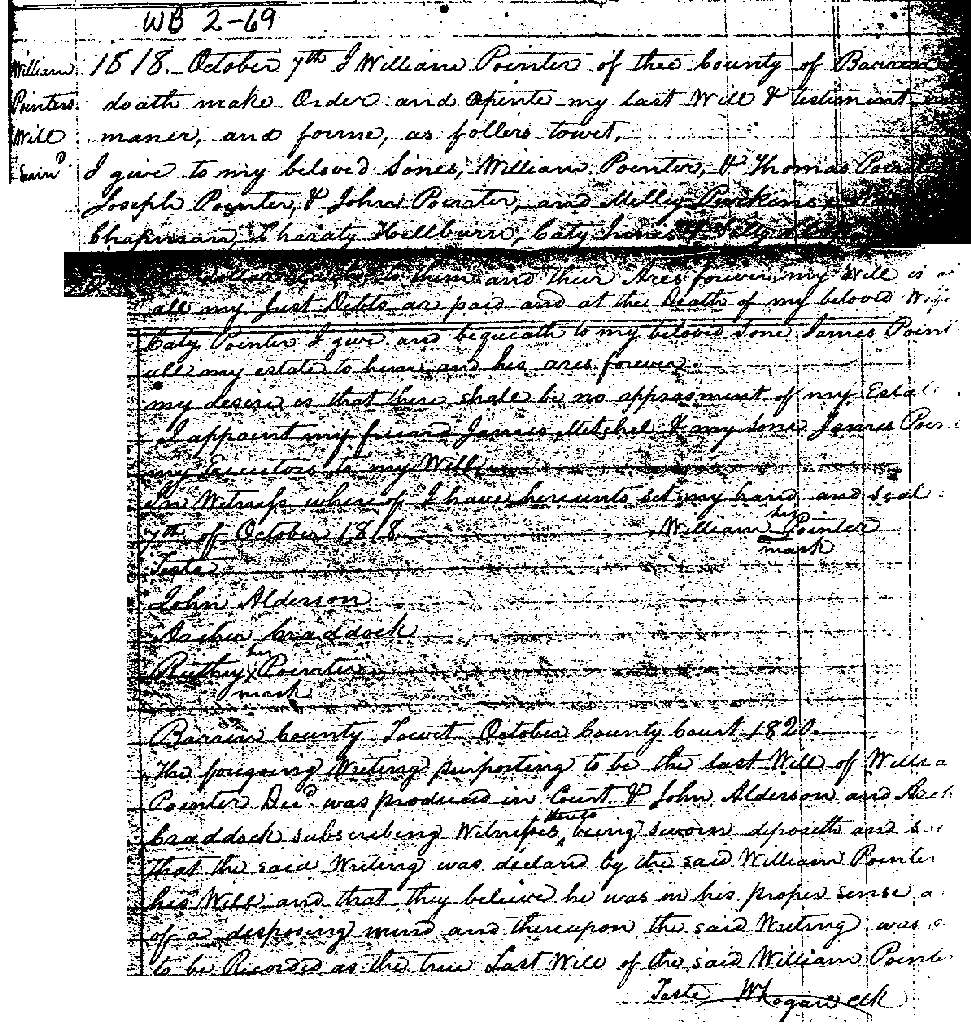 WB 2-69
William Pointers Will
1818. October 7th I William Pointer of thee County of Barren
doath make Order and apinte my last Will & testiment
maner, and forme, as follers towit,
I give to my beloved Sones, William Pointer, & Thomas Pointer
Joseph Pointer, & John Pointer, and Milly Perkins
Chapman, Charaty Hillburn, Caty
to them and their Ares forever, my Will is
all my Just Debts are paid and at the Death of my beloved Wife
Caty Pointer I give and bequeath to my beloved Sone James Poin
all my estate to him and his ares forever.
my desire is that there shale be no appraisment of my Esta
I appoint my friend James Mitchel & my sone James Poin
my Executors to my Will
In Witness whereof I have hereunto set my hand and seal
7th of October 1818 William his Pointer
mark
Teste
John Alderson
Craddock
Ruthy her Pointer
mark
Barren County Towit October County Court 1820.
The forgoing Writing purporting to be the last Will of Willia
Pointer Decd was produced in Court & John Alderson and
Craddock subscribing Witnesses thereto being sworn deposeth and s
that the said Writing was declard by the said William Pointer
his Will and that they believe he was in his proper sense a
of a disposing mind and thereupon the said Writing was o
to be Recorded as the true Last Will of the said William Pointe
Teste W Logan clk